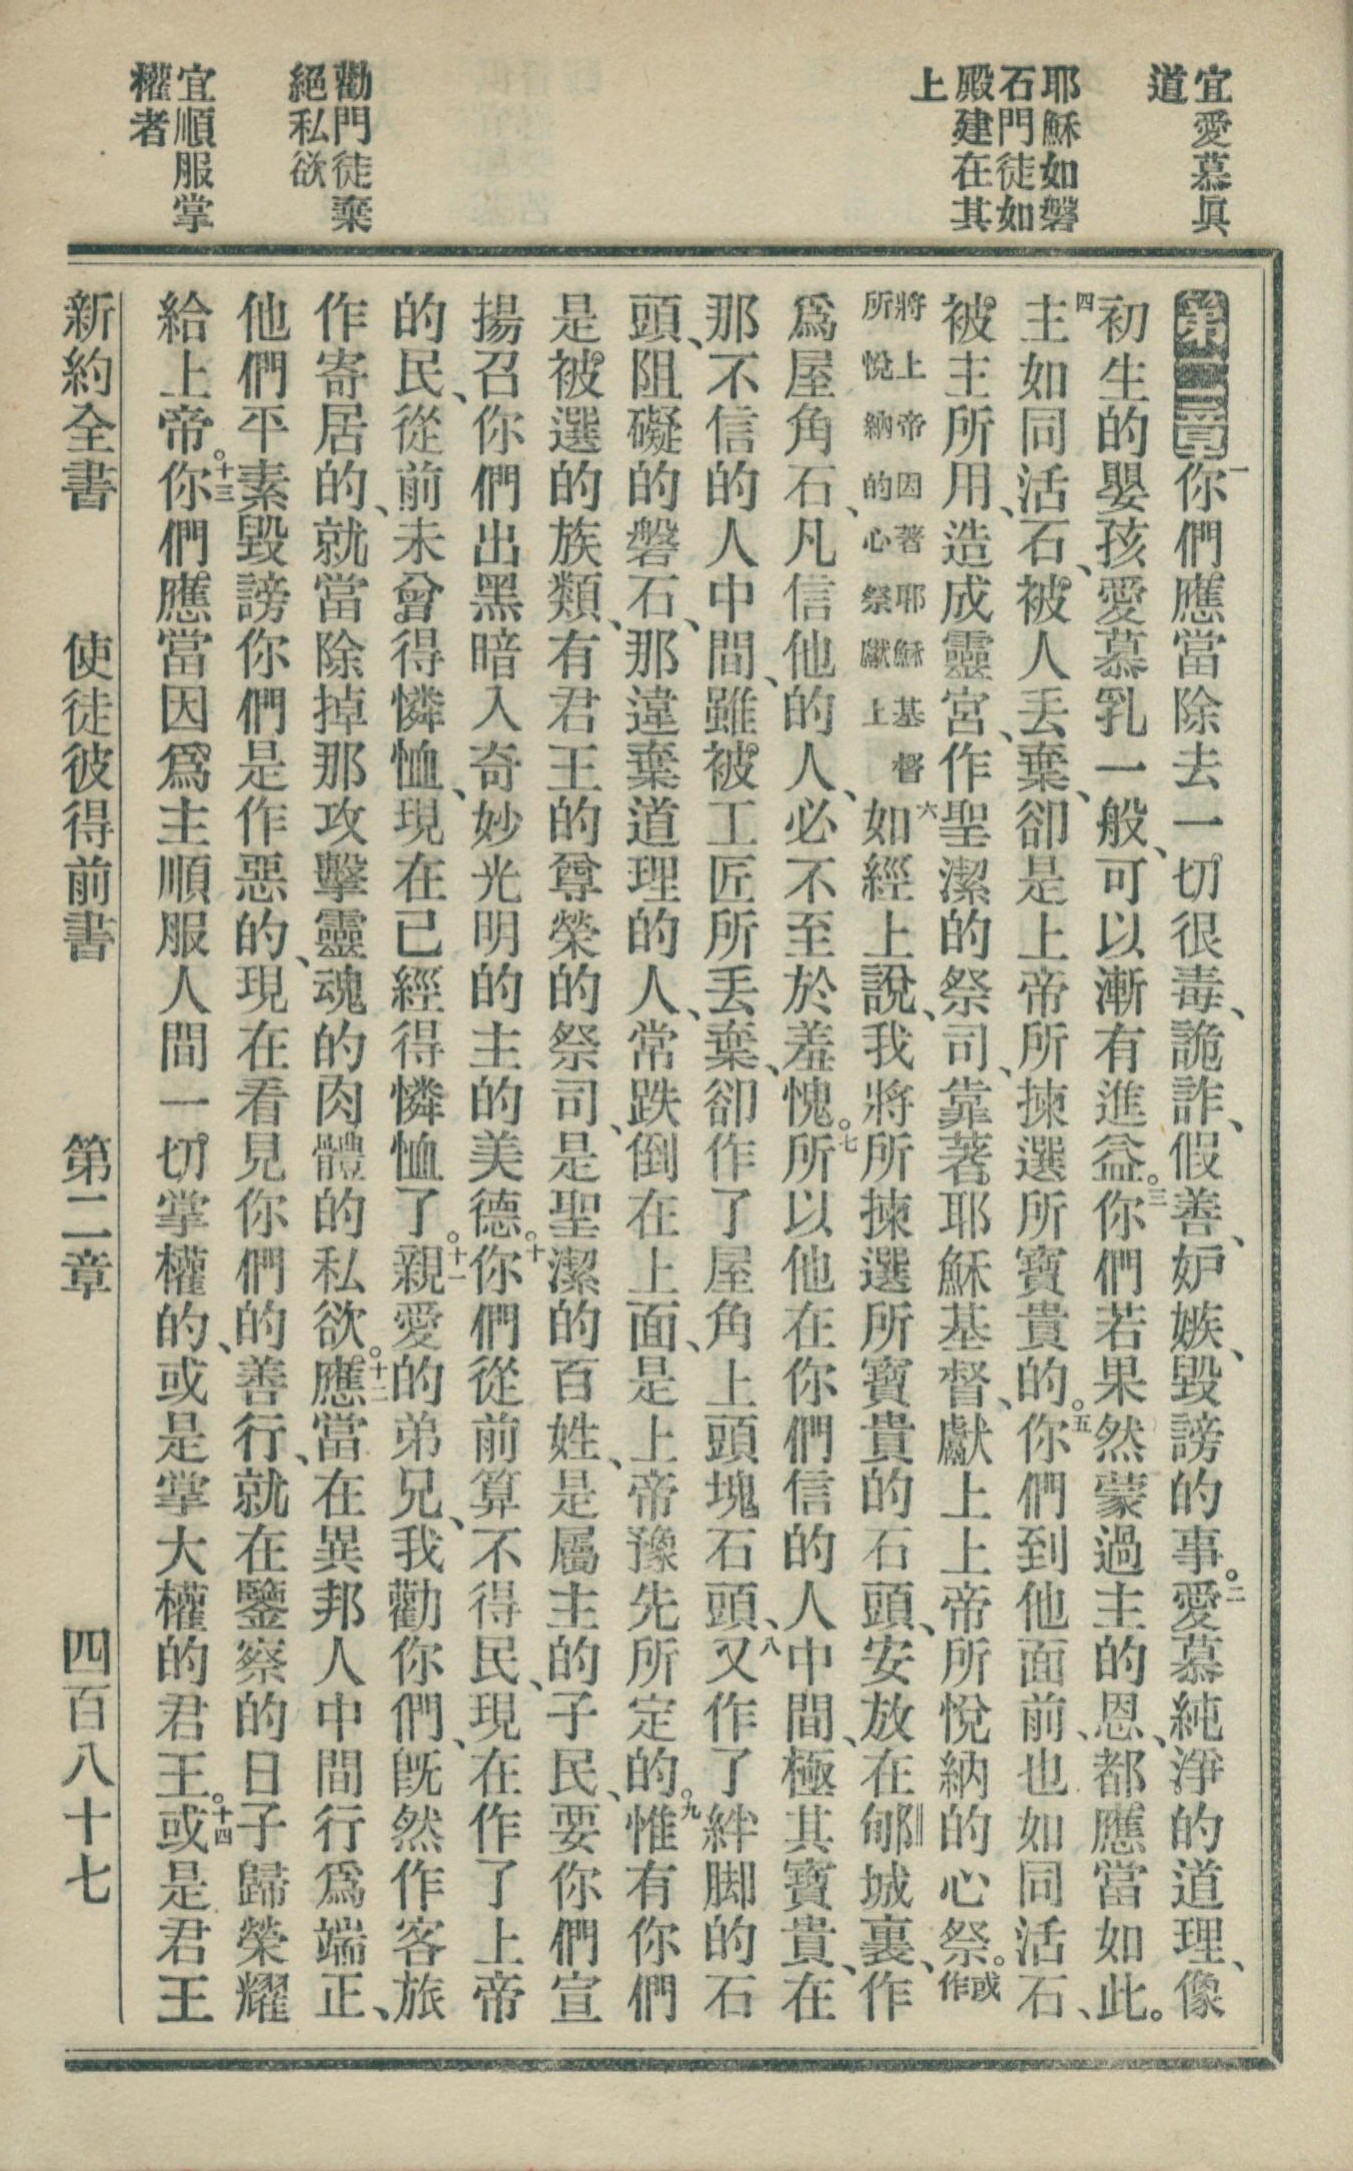 宜愛慕眞
道
耶穌如磐
石門徒如
殿建在其
上
勸門徒棄
絕私欲
宜順服掌
權者
第二章一你們應當除去一切很毒、詭詐、假善、妒嫉、毀謗的事。二愛慕純淨的道理、像
初生的嬰孩愛慕乳一般、可以漸有進益。三你們若果然蒙過主的恩、都應當如此。
四主如同活石、被人丟棄、卻是上帝所揀選所寶貴的。五你們到他面前、也如同活石、
被主所用、造成靈宮、作聖潔的祭司、靠著耶穌基督、獻上上帝所悅納的心祭。或作
將上帝因著耶穌基督
所悅納的心祭獻上
六如經上說、我將所揀選所寶貴的石頭、安放在郇城裏、作
爲屋角石、凡信他的人、必不至於羞愧。七所以他在你們信的人中間、極其寶貴、在
那不信的人中間、雖被工匠所丟棄、卻作了屋角上頭塊石頭、八又作了絆脚的石
頭、阻礙的磐石、那違棄道理的人、常跌倒在上面、是上帝豫先所定的。九惟有你們
是被選的族類、有君王的尊榮的祭司、是聖潔的百姓、是屬主的子民、要你們宣
揚召你們出黑暗入奇妙光明的主的美德。十你們從前算不得民、現在作了上帝
的民、從前未曾得憐恤、現在已經得憐恤了。十一親愛的弟兄、我勸你們、旣然作客旅
作寄居的、就當除掉那攻擊靈魂的肉體的私欲。十二應當在異邦人中間行爲端正、
他們平素毀謗你們是作惡的、現在看見你們的善行、就在鑒察的日子歸榮耀
給上帝。十三你們應當因爲主順服人間一切掌權的、或是掌大權的君王。十四或是君王
新約全書 使徒彼得前書 第二章 四百八十七